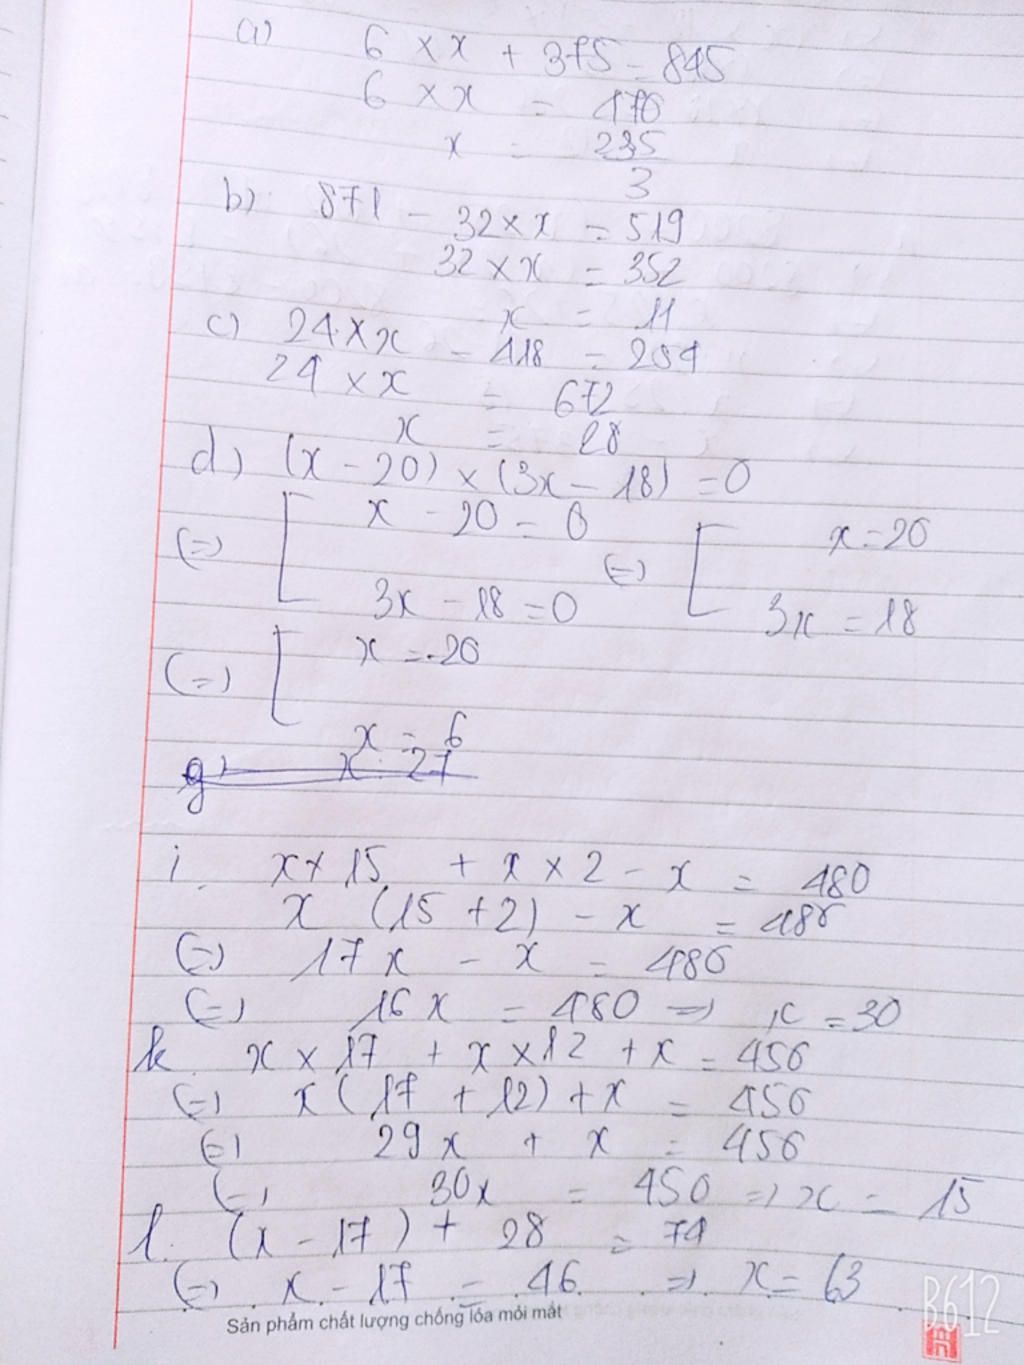 a) 6 × x + 375 = 845
6 × x = 470
x = 235/3
b) 871 - 32 × x = 519
32 × x = 352
x = 11
c) 24 × x - 418 = 254
24 × x = 672
x = 28
d) (x - 20) × (3x - 18) = 0
(=) [ x - 20 = 0 (=) [ x = 20
3x - 18 = 0 3x = 18
(=) [ x = 20
x = 6
g) x = 27
i. x × 15 + x × 2 - x = 480
x (15 + 2) - x = 480
(=) 17x - x = 480
(=) 16x = 480 => x = 30
k. x × 17 + x × 12 + x = 450
(=) x (17 + 12) + x = 450
(=) 29x + x = 450
(=) 30x = 450 => x = 15
l. (x - 17) + 28 = 74
(=) x - 17 = 46 => x = 63
Sản phẩm chất lượng chống lóa mỏi mắt
B612